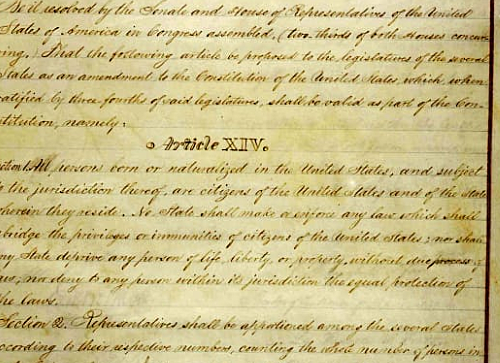 Be it resolved by the Senate and House of Representatives of the United
States of America in Congress assembled, (two thirds of both Houses concur-
ring,) That the following article be proposed to the legislatures of the several
States as an amendment to the Constitution of the United States, which, when
ratified by three fourths of said legislatures, shall be valid as part of the Con-
stitution, namely:
Article XIV.
ection 1. All persons born or naturalized in the United States, and subject
to the jurisdiction thereof, are citizens of the United States and of the State
wherein they reside. No State shall make or enforce any law which shall
bridge the privileges or immunities of citizens of the United States; nor shall
any State deprive any person of life, liberty, or property, without due process of
aw, nor deny to any person within its jurisdiction the equal protection of
the laws.
Section 2. Representatives shall be apportioned among the several States
according to their respective numbers, counting the whole number of persons in